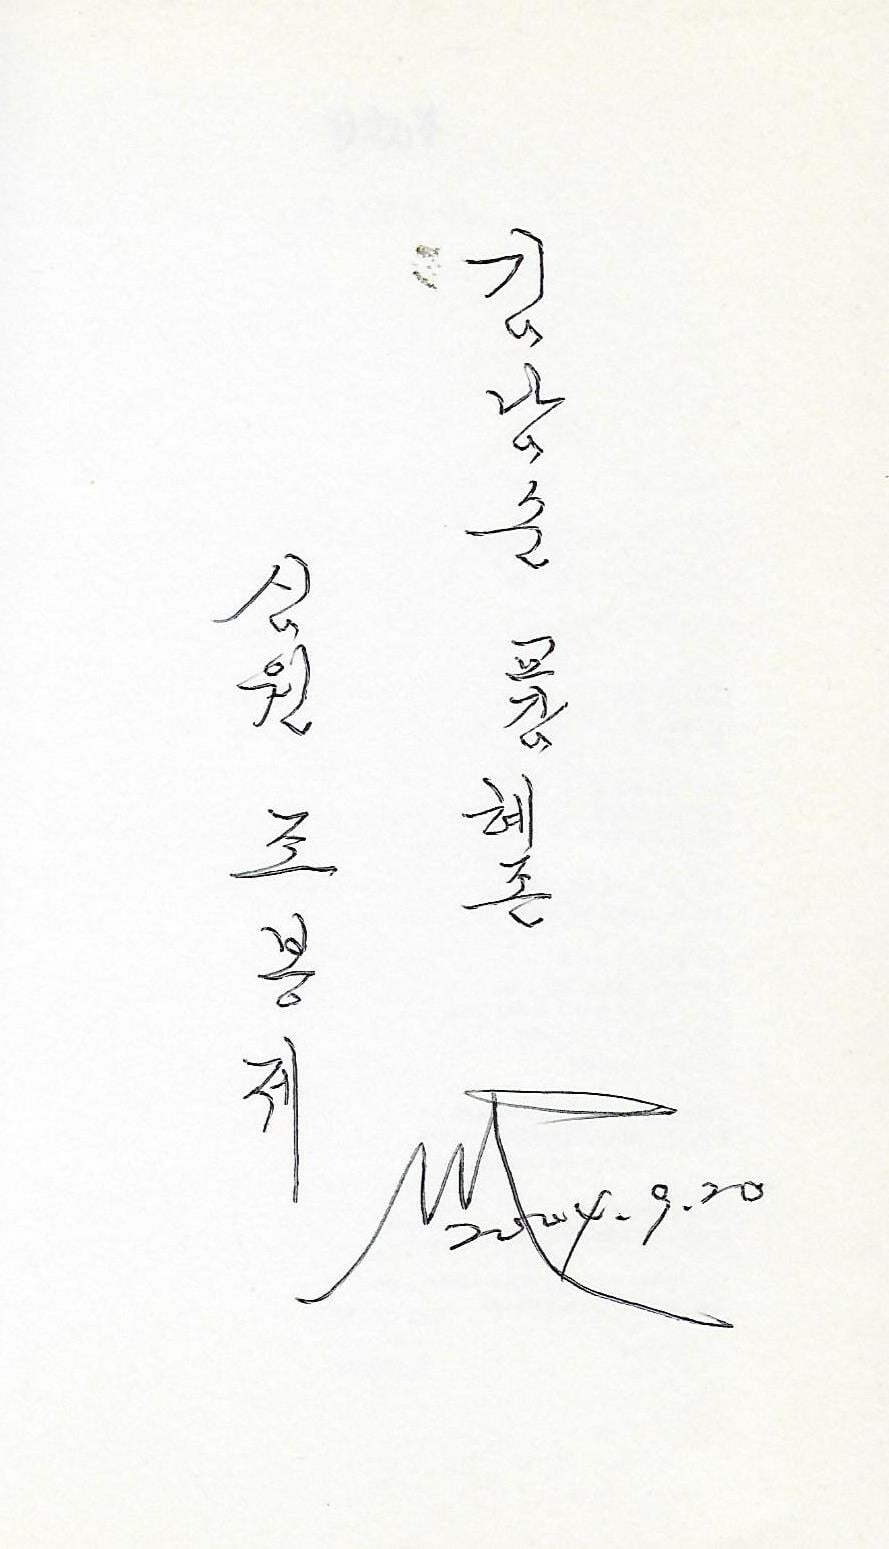 김남순 교감 혜존
심원 조봉제
2004. 9. 20